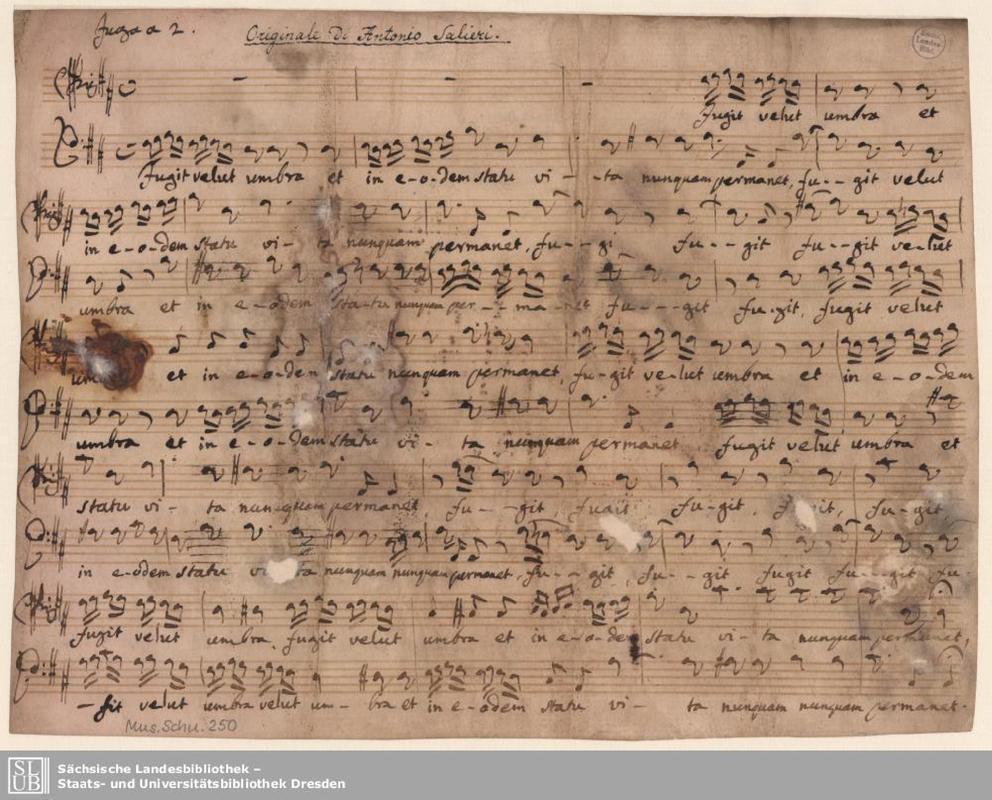 Fuga a 2. Originale Di Antonio Salieri.
Fugit velut umbra et
Fugit velut umbra et in e-o-dem statu vi - ta nunquam permanet, fu - - git velut
in e-o-dem statu vi - ta nunquam permanet, fu - - gi fu - - git fu - - git ve-lut
umbra et in e-odem sta-tu nunquam per - - ma - net fu - - git fu-git, fugit velut
et in e-o-dem statu nunquam permanet, fu-git ve-lut umbra et in e-o-dem
umbra et in e-o-dem statu vi - ta nunquam permanet fugit velut umbra et
statu vi - ta nunquam permanet, fu - - git, fugit fu-git, fu-git,
in e-odem statu ta nunquam nunquam permanet, fu - - git, fu - - git fugit fu - - git fu-
fugit velut umbra, fugit velut umbra et in e-o-dem statu vi - ta nunquam permanet,
- git velut umbra velut um - bra et in e-odem statu vi - ta nunquam nunquam permanet.
Mus.Schu. 250
SLUB
Sächsische Landesbibliothek –
Staats- und Universitätsbibliothek Dresden